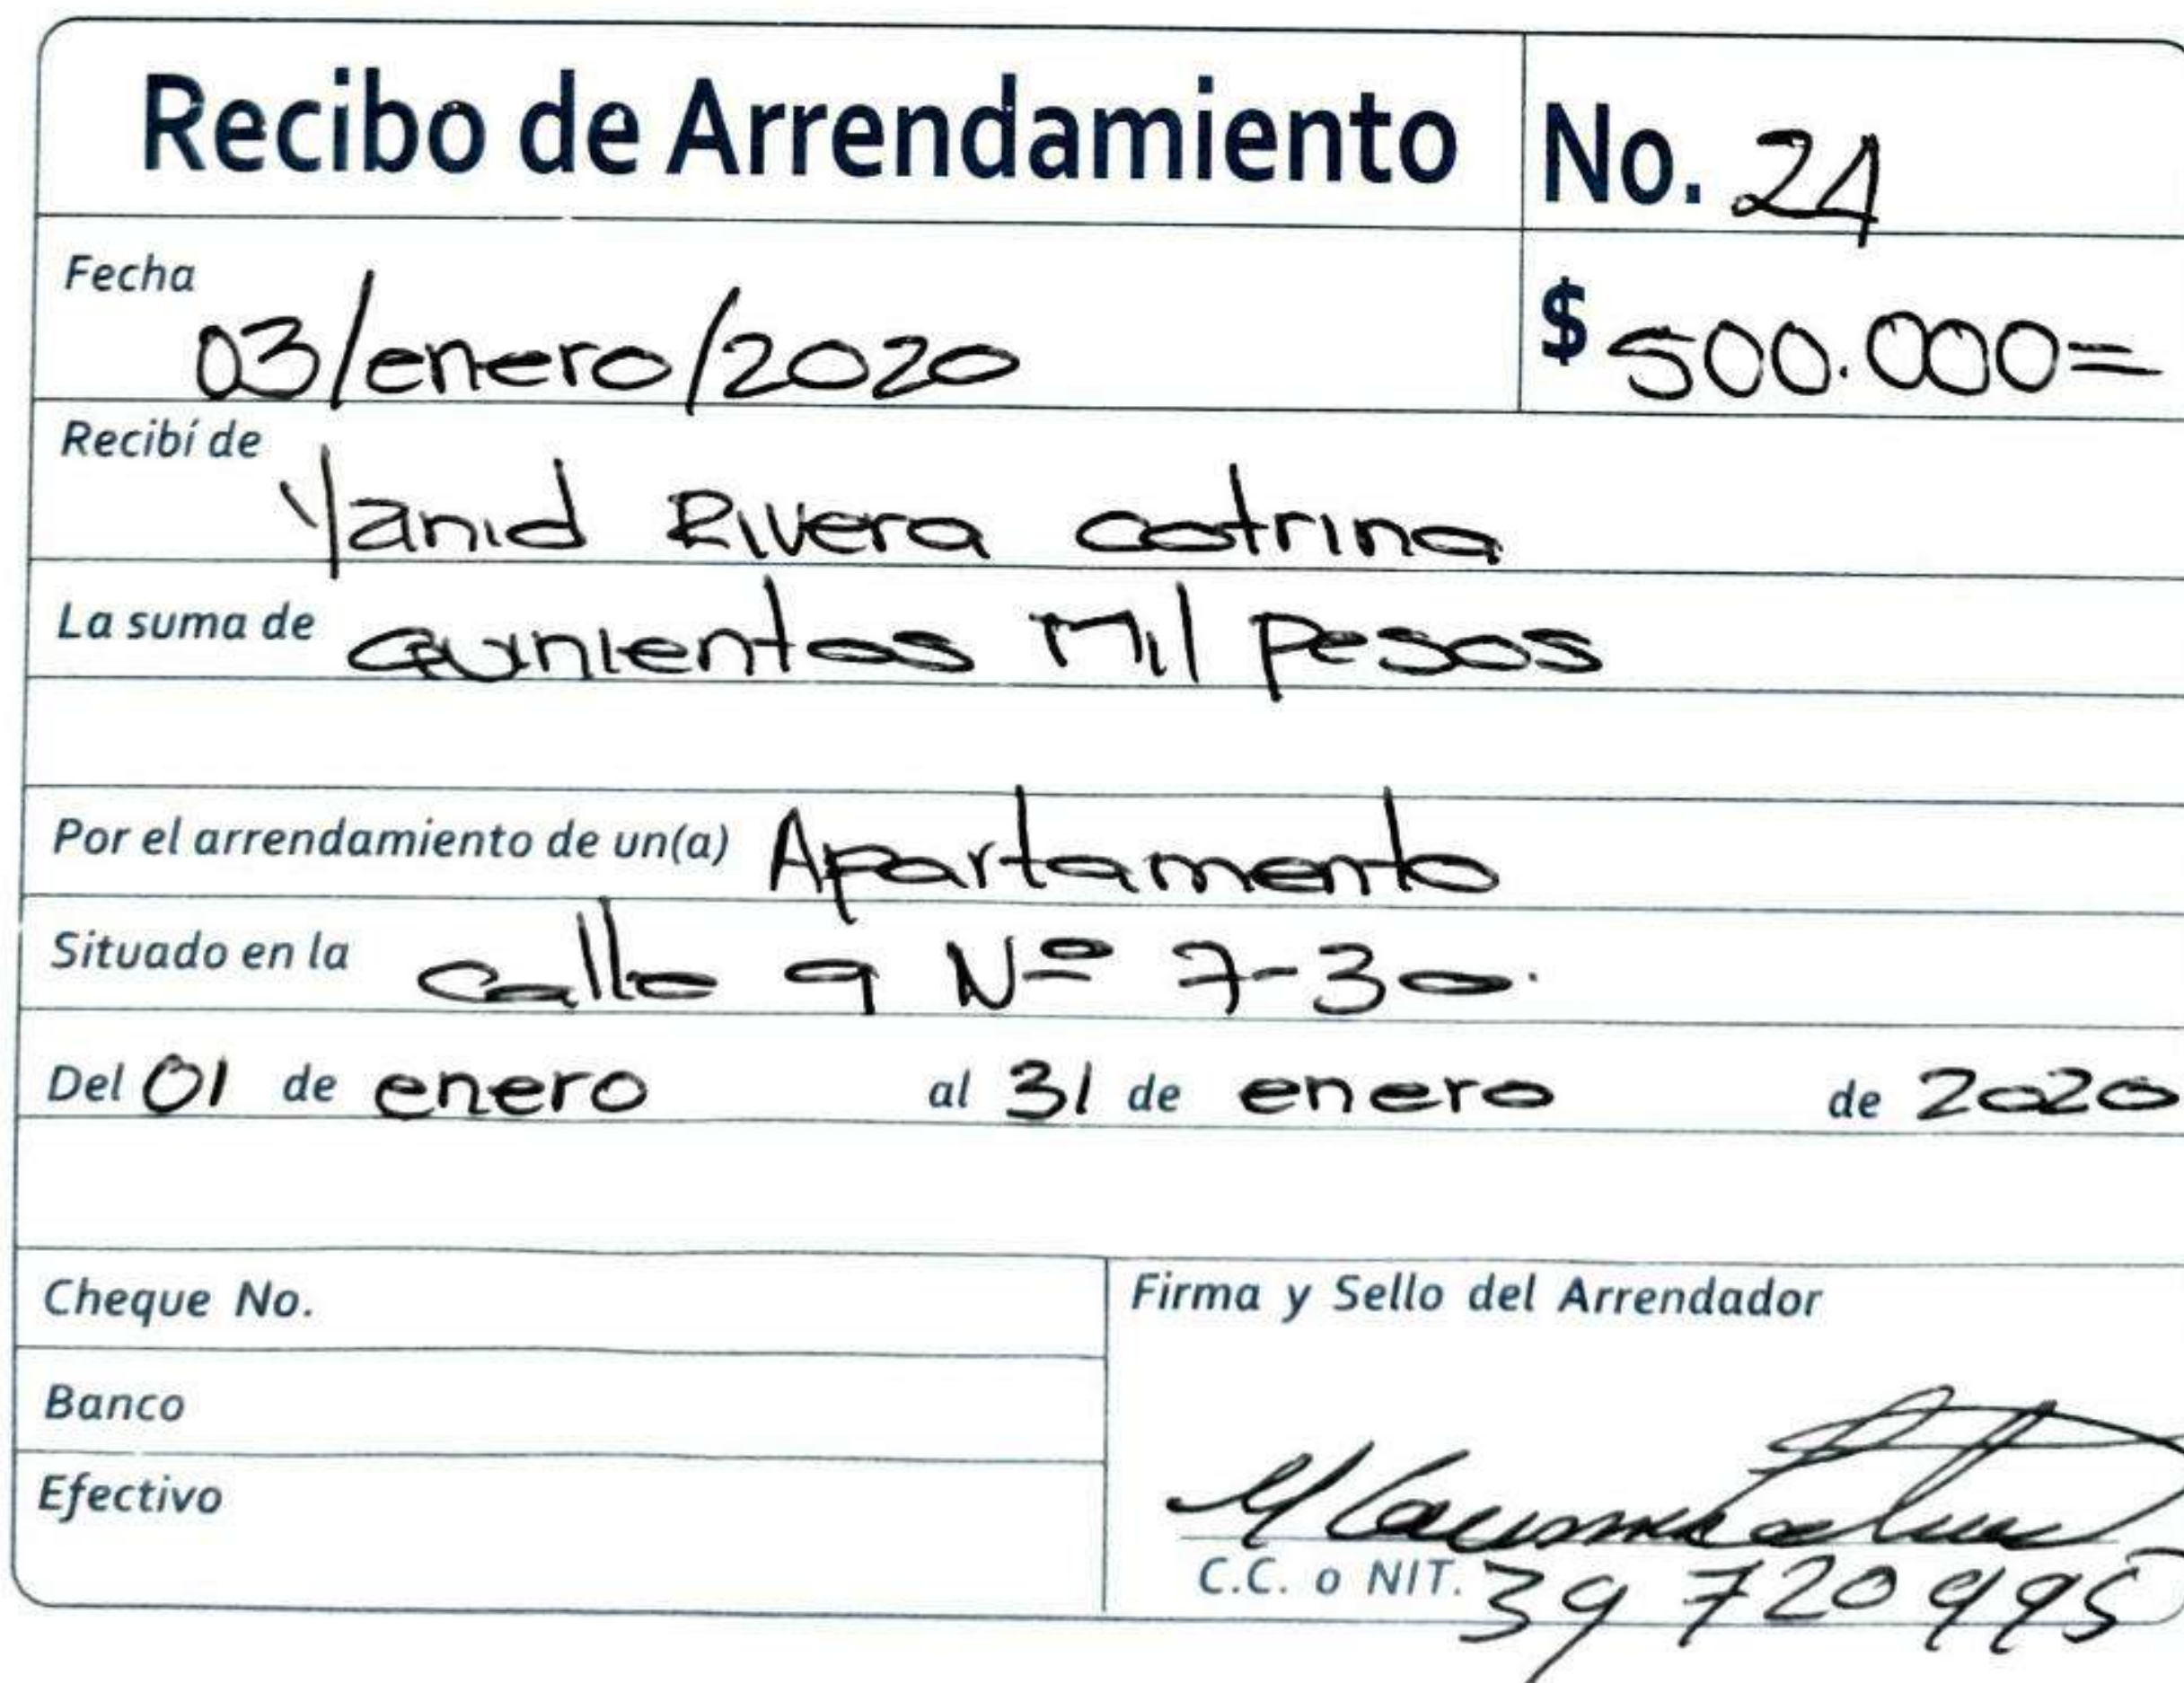 Recibo de Arrendamiento No. 24
Fecha 03/enero/2020 $ 500.000=
Recibí de Yanid Rivera cotrina
La suma de Quinientos Mil pesos
Por el arrendamiento de un(a) Apartamento
Situado en la calle 9 Nº 7-30.
Del 01 de enero al 31 de enero de 2020
Cheque No.
Firma y Sello del Arrendador
Banco
Efectivo
C.C. o NIT. 39 720 995